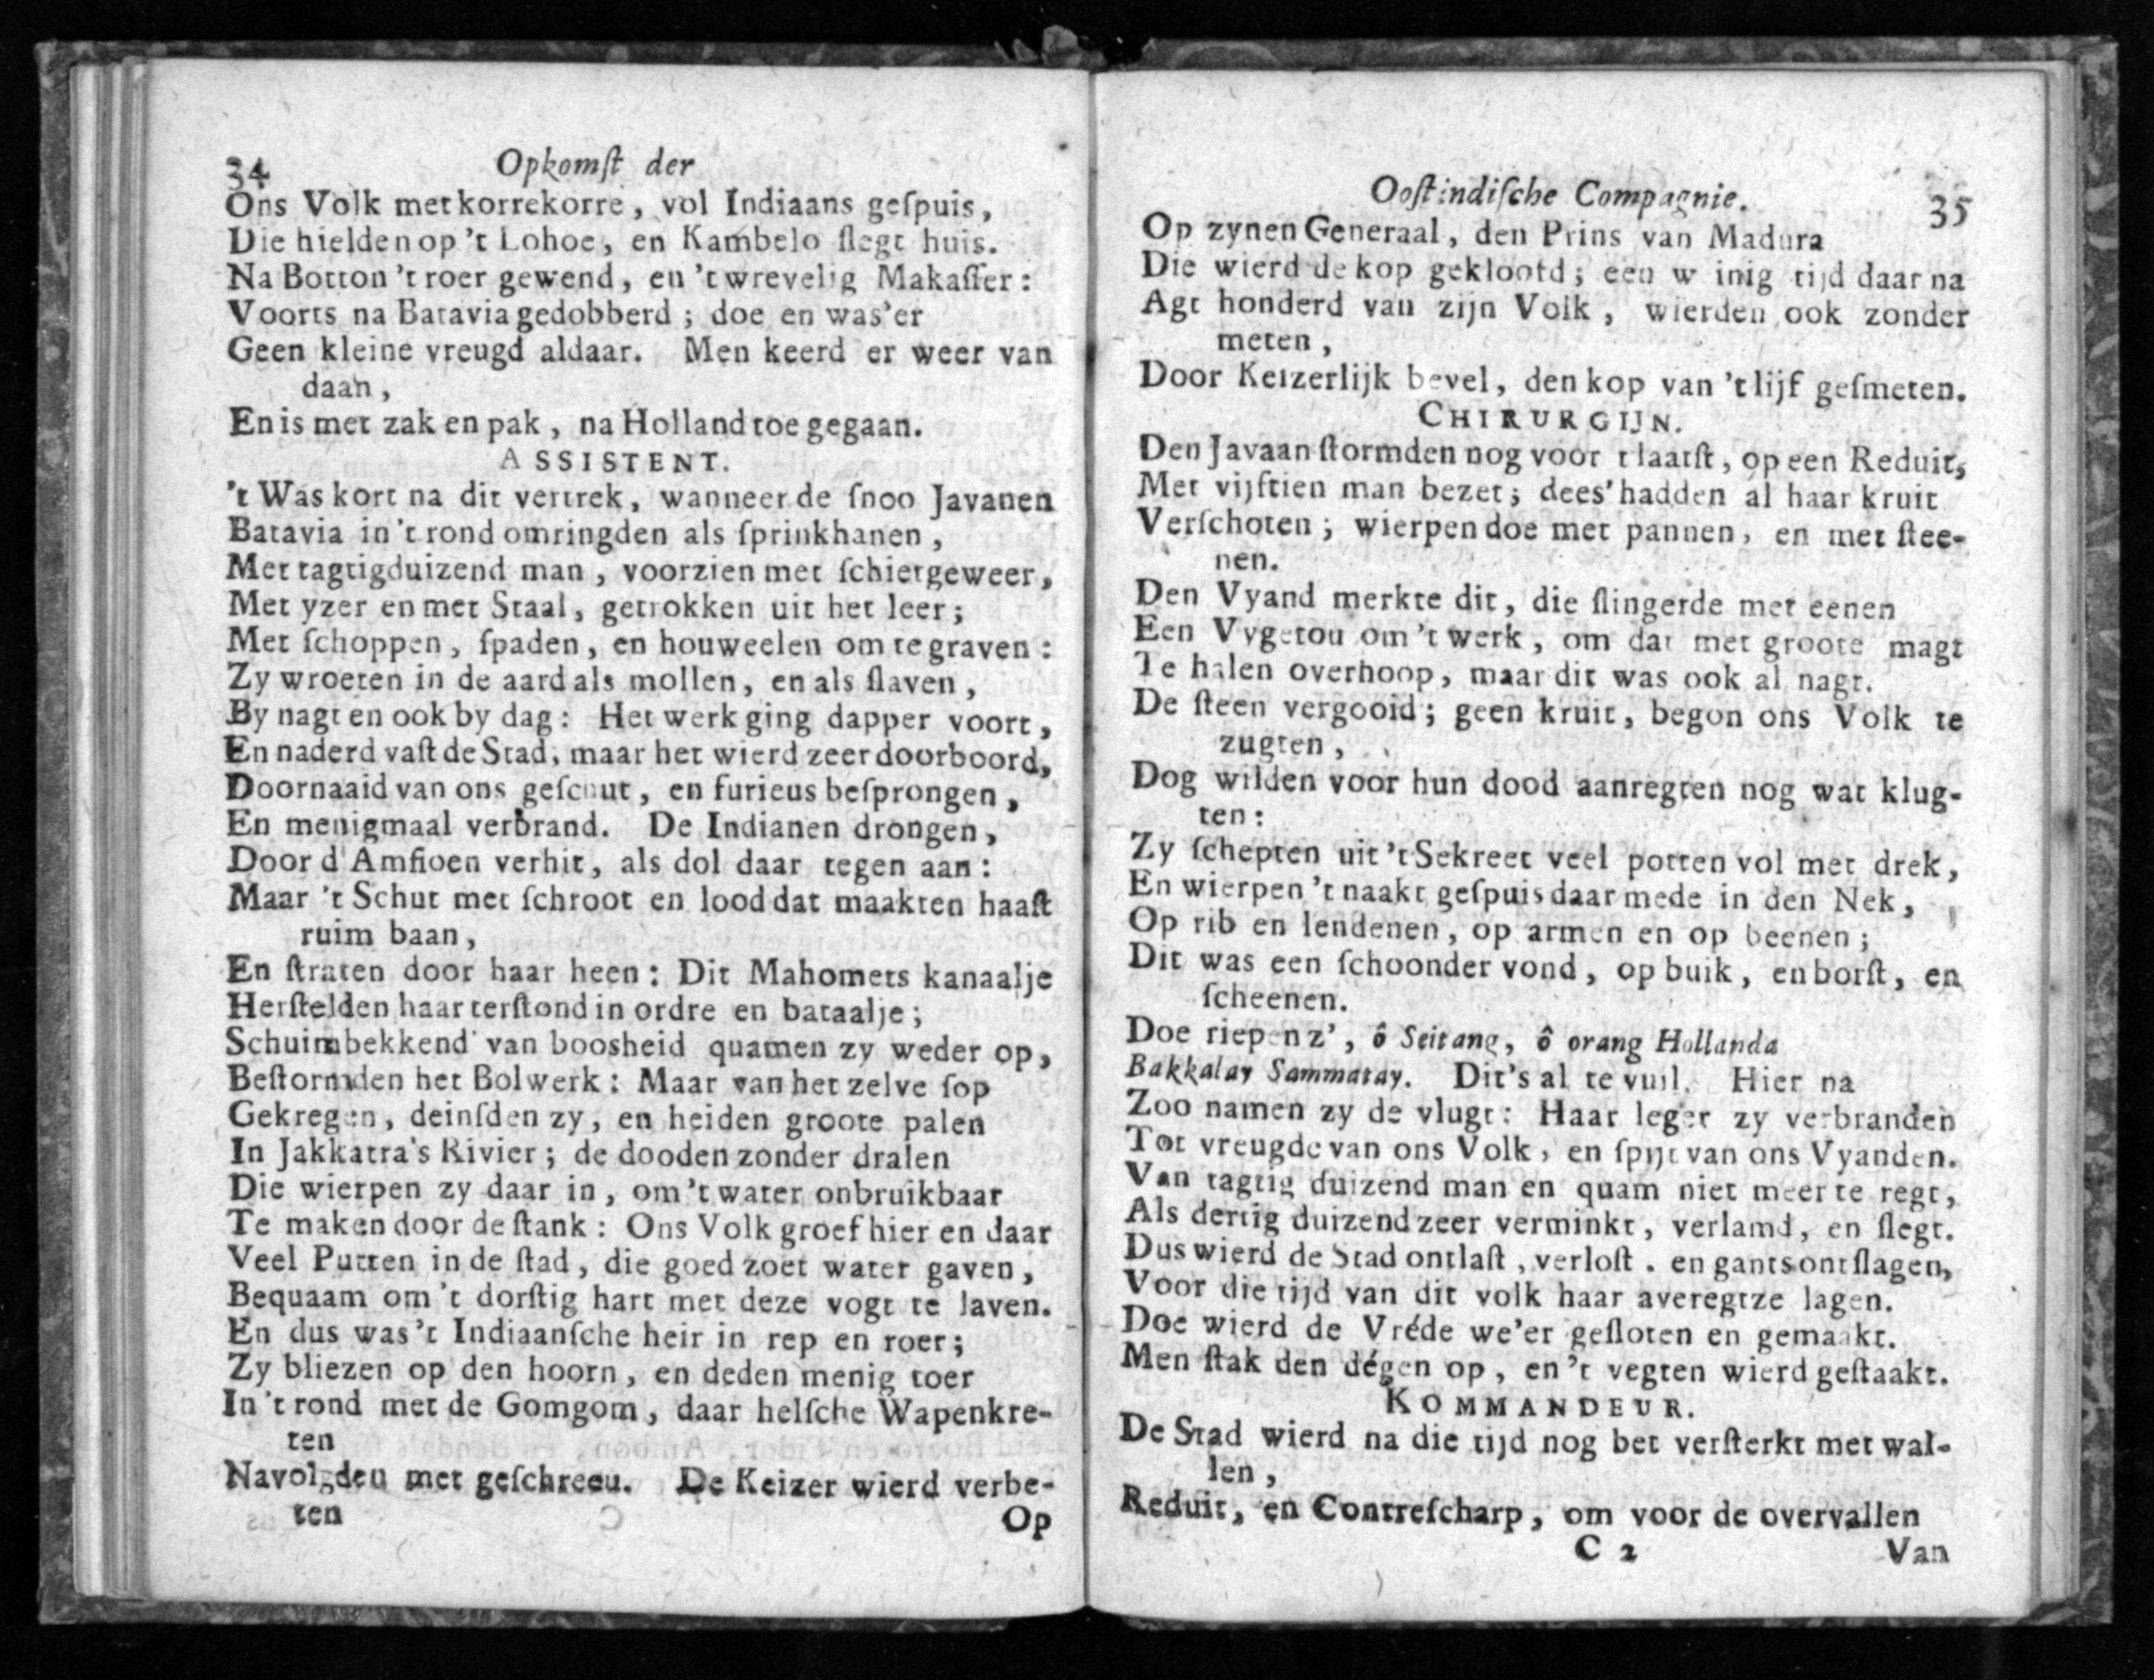 34 Opkomſt der
Ons Volk met korrekorre, vol Indiaans geſpuis,
Die hielden op 't Lohoe, en Kambelo ſlegt huis.
Na Botton 't roer gewend, en 't wrevelig Makaſſer:
Voorts na Batavia gedobberd; doe en was'er
Geen kleine vreugd aldaar. Men keerd er weer van
daan,
En is met zak en pak, na Holland toe gegaan.
ASSISTENT.
't Was kort na dit vertrek, wanneer de ſnoo Javanen
Batavia in 't rond omringden als ſprinkhanen,
Met tagtigduizend man, voorzien met ſchietgeweer,
Met yzer en met Staal, getrokken uit het leer;
Met ſchoppen, ſpaden, en houweelen om te graven:
Zy wroeten in de aard als mollen, en als ſlaven,
By nagt en ook by dag: Het werk ging dapper voort,
En naderd vaſt de Stad, maar het wierd zeer doorboord,
Doornaaid van ons geſchut, en furieus beſprongen,
En menigmaal verbrand. De Indianen drongen,
Door d'Amfioen verhit, als dol daar tegen aan:
Maar 't Schut met ſchroot en lood dat maakten haaſt
ruim baan,
En ſtraten door haar heen: Dit Mahomets kanaalje
Herſtelden haar terſtond in ordre en bataalje;
Schuimbekkend van boosheid quamen zy weder op,
Beſtormden het Bolwerk: Maar van het zelve ſop
Gekregen, deinſden zy, en heiden groote palen
In Jakkatra's Rivier; de dooden zonder dralen
Die wierpen zy daar in, om 't water onbruikbaar
Te maken door de ſtank: Ons Volk groef hier en daar
Veel Putten in de ſtad, die goed zoet water gaven,
Bequaam om 't dorſtig hart met deze vogt te laven.
En dus was 't Indiaanſche heir in rep en roer;
Zy bliezen op den hoorn, en deden menig toer
In 't rond met de Gomgom, daar helſche Wapenkre-
ten
Navolgden met geſchreeu. De Keizer wierd verbe-
ten
Op
Ooſtindiſche Compagnie. 35
Op zynen Generaal, den Prins van Madura
Die wierd de kop geklootd; een w inig tijd daar na
Agt honderd van zijn Volk, wierden ook zonder
meten,
Door Keizerlijk bevel, den kop van 't lijf geſmeten.
CHIRURGIJN.
Den Javaan ſtormden nog voor t laatſt, op een Reduit,
Met vijftien man bezet; dees' hadden al haar kruit
Verſchoten; wierpen doe met pannen, en met ſtee-
nen.
Den Vyand merkte dit, die ſlingerde met eenen
Een Vygetou om 't werk, om dat met groote magt
Te halen overhoop, maar dit was ook al nagt.
De ſteen vergooid; geen kruit, begon ons Volk te
zugten,
Dog wilden voor hun dood aanregten nog wat klug-
ten:
Zy ſchepten uit 't Sekreet veel potten vol met drek,
En wierpen 't naakt geſpuis daar mede in den Nek,
Op rib en lendenen, op armen en op beenen;
Dit was een ſchoonder vond, op buik, en borſt, en
ſcheenen.
Doe riepen z', ô Seitang, ô orang Hollanda
Bakkalay Sammatay. Dit's al te vuil. Hier na
Zoo namen zy de vlugt: Haar leger zy verbranden
Tot vreugde van ons Volk, en ſpijt van ons Vyanden.
Van tagtig duizend man en quam niet meer te regt,
Als dertig duizend zeer verminkt, verlamd, en ſlegt.
Dus wierd de Stad ontlaſt, verloſt. en gants ontſlagen,
Voor die tijd van dit volk haar averegtze lagen.
Doe wierd de Vréde we'er geſloten en gemaakt.
Men ſtak den dégen op, en 't vegten wierd geſtaakt.
KOMMANDEUR.
De Stad wierd na die tijd nog bet verſterkt met wal-
len,
Reduit, en Contreſcharp, om voor de overvallen
C 2 Van